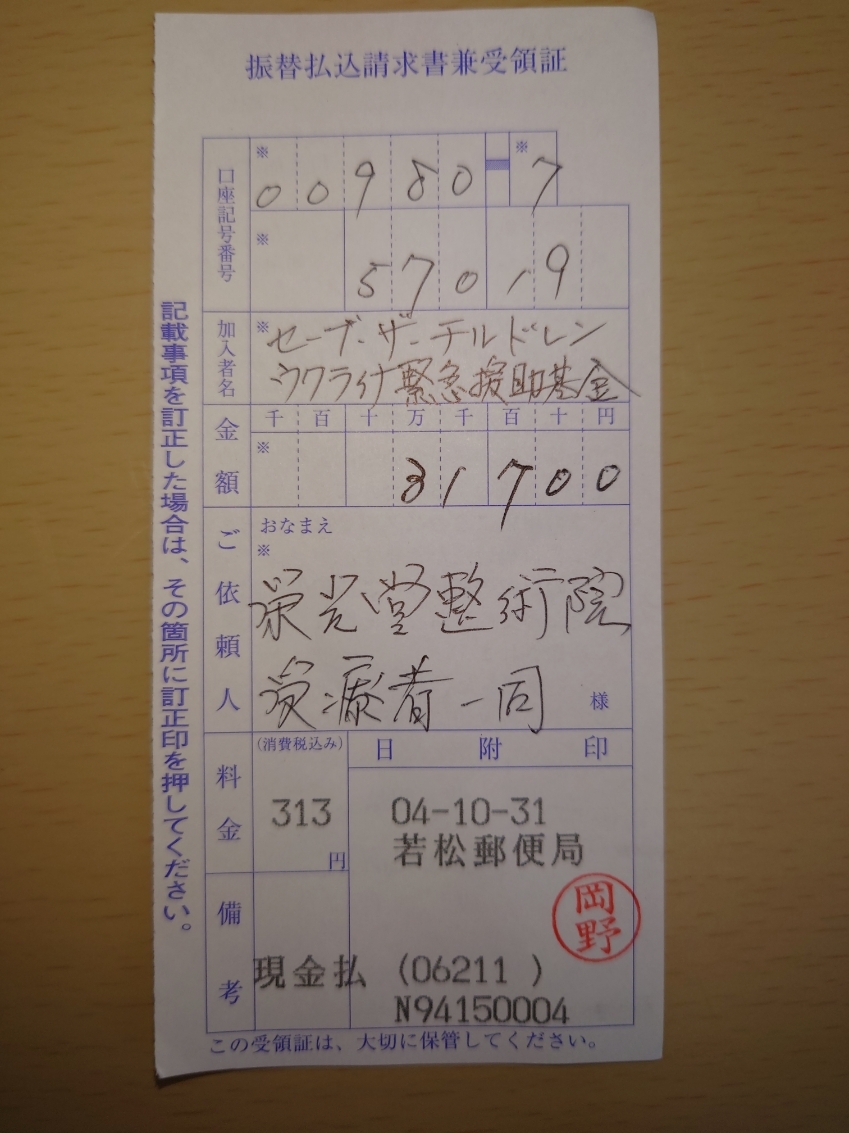 振替払込請求書兼受領証
口座記号番号
※ 00980-※7
※ 57019
加入者名
※ セーブ・ザ・チルドレン
ウクライナ緊急援助基金
金額
千 百 十 万 千 百 十 円
※ 31700
ご依頼人
おなまえ
※
栄光堂整術院
療者一同 様
料金
(消費税込み)
313
円
日附印
04-10-31
若松郵便局
岡野
備考
現金払 (06211 )
N94150004
この受領証は、大切に保管してください。
記載事項を訂正した場合は、その箇所に訂正印を押してください。